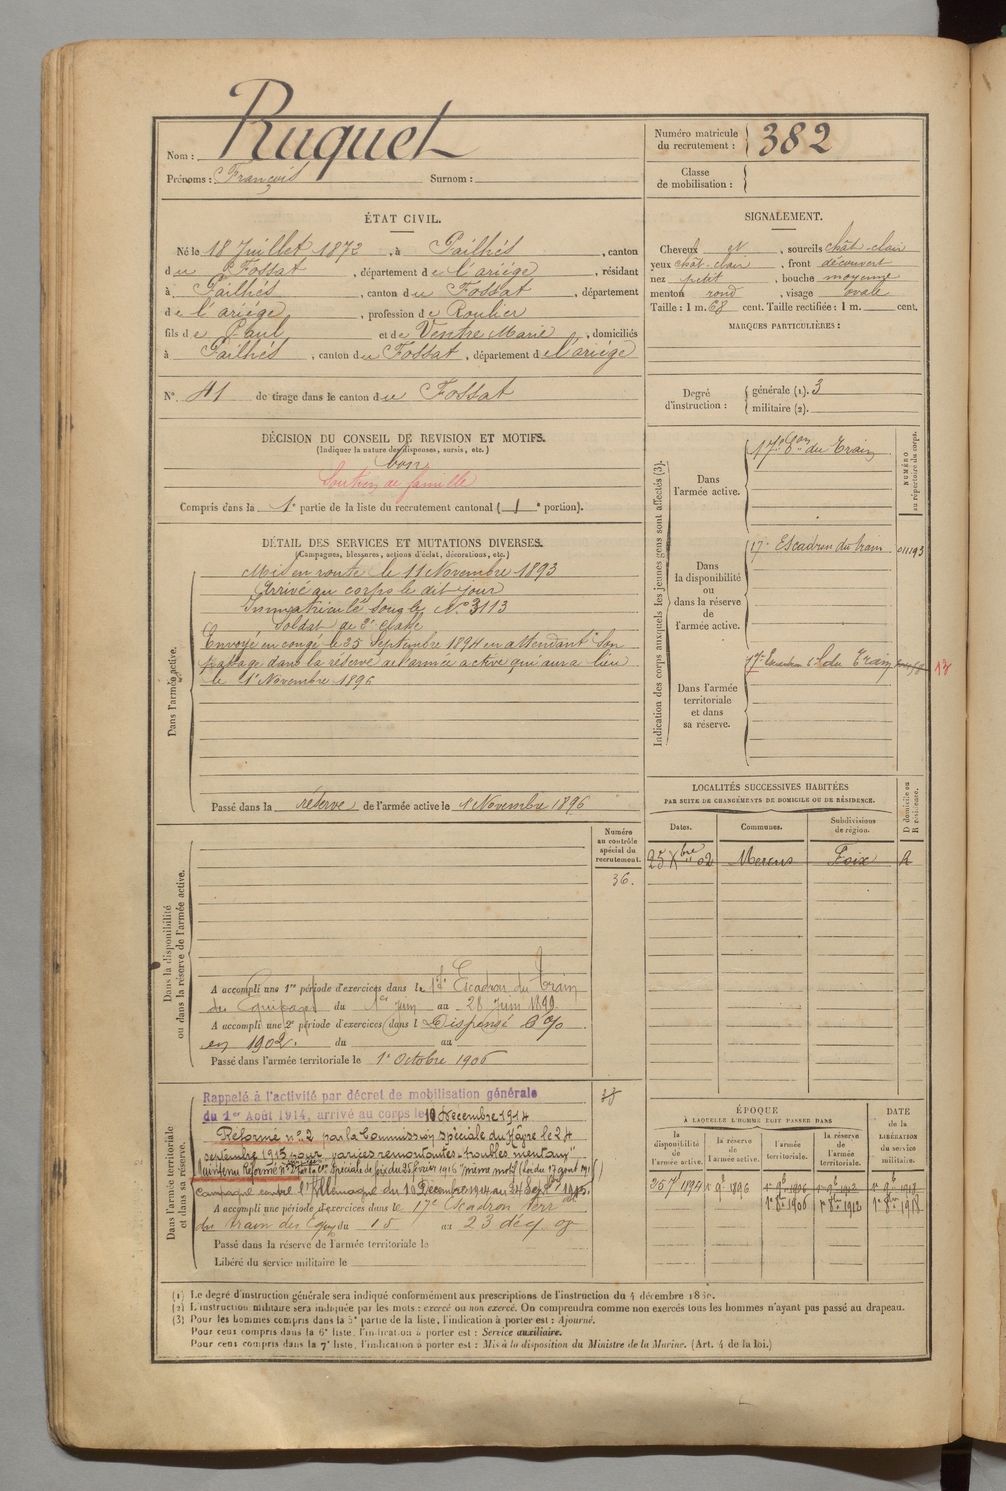 Nom : Ruquet
Prénoms : François Surnom :
Numéro matricule du recrutement : 382
Classe de mobilisation :
ÉTAT CIVIL.
Né le 18 Juillet 1872, à Pailhés, canton
du Fossat, département de l'ariége, résidant
à Pailhés, canton du Fossat, département
de l'ariége, profession de Roulier
fils de Paul et de Ventre Marie, domiciliés
à Pailhés, canton du Fossat, département de l'ariége
N° 41 de tirage dans le canton du Fossat
SIGNALEMENT.
Cheveux et, sourcils chât-clair
yeux chât-clair, front découvert
nez petit, bouche moyenne
menton rond, visage ovale
Taille : 1 m. 68 cent. Taille rectifiée : 1 m. cent.
MARQUES PARTICULIÈRES :
Degré d'instruction : générale (1). 3
militaire (2).
DÉCISION DU CONSEIL DE REVISION ET MOTIFS.
(Indiquer la nature des dispenses, sursis, etc.)
bon
Soutien de famille
Compris dans la 1e partie de la liste du recrutement cantonal (1e portion).
DÉTAIL DES SERVICES ET MUTATIONS DIVERSES.
(Campagnes, blessures, actions d'éclat, décorations, etc.)
Dans l'armée active.
Mis en route le 11 Novembre 1893
Arrivé au corps le dit jour
Immatriculé sous le N° 3113
Soldat de 2e classe
Envoyé en congé le 25 Septembre 1894 en attendant son
passage dans la réserve de l'armée active qui aura lieu
le 1e Novembre 1896
Passé dans la réserve de l'armée active le 1e Novembre 1896
Indication des corps auxquels les jeunes gens sont affectés (3).
NUMÉRO au répertoire du corps.
Dans l'armée active.
17e Eon du Train
Dans la disponibilité ou dans la réserve de l'armée active.
17e Escadron du train 01193
Dans l'armée territoriale et dans sa réserve.
17e Escadron du Train
LOCALITÉS SUCCESSIVES HABITÉES
PAR SUITE DE CHANGEMENTS DE DOMICILE OU DE RÉSIDENCE.
Dates. Communes. Subdivisions de région. D domicile ou R résidence.
25 Xbre 02 Mercus Foix R
Dans la disponibilité ou dans la réserve de l'armée active.
Numéro au contrôle spécial du recrutement.
36.
A accompli une 1re période d'exercices dans le 17e Escadron du Train
des Equipages du 1er Juin au 28 Juin 1899
A accompli une 2e période d'exercices dans l Dispensé
en 1902. du au
Passé dans l'armée territoriale le 1e Octobre 1906
Dans l'armée territoriale et dans sa réserve.
Rappelé à l'activité par décret de mobilisation générale
du 1er Août 1914, arrivé au corps le 10 Decembre 1914
Réformé n° 2 par la Commission spéciale du Hâvre le 24
septembre 1915 pour varices remontantes - troubles mentaux
Campagne contre l'Allemagne du 10 Decembre 1914 au 24 Sept 1915.
A accompli une période d'exercices dans le 17e Escadron Terr
du train des Equip du 15 au 23 déc. 08
Passé dans la réserve de l'armée territoriale le
Libéré du service militaire le
ÉPOQUE
À LAQUELLE L'HOMME DOIT PASSER DANS
la disponibilité de l'armée active. la réserve de l'armée active. l'armée territoriale. la réserve de l'armée territoriale.
DATE de la LIBÉRATION du service militaire.
25 7 1894 1e 9b 1896 1e 9b 1906 1e 9b 1912 1e 9b 1918
1e 8bre 1906 1e 8bre 1912 1e 8bre 1918
(1) Le degré d'instruction générale sera indiqué conformément aux prescriptions de l'instruction du 4 décembre
(2) L'instruction militaire sera indiquée par les mots : exercé ou non exercé. On comprendra comme non exercés tous les hommes n'ayant pas passé au drapeau.
(3) Pour les hommes compris dans la 5e partie de la liste, l'indication à porter est : Ajourné.
Pour ceux compris dans la 6e liste, l'indication à porter est : Service auxiliaire.
Pour ceux compris dans la 7e liste, l'indication à porter est : Mis à la disposition du Ministre de la Marine. (Art. 4 de la loi.)